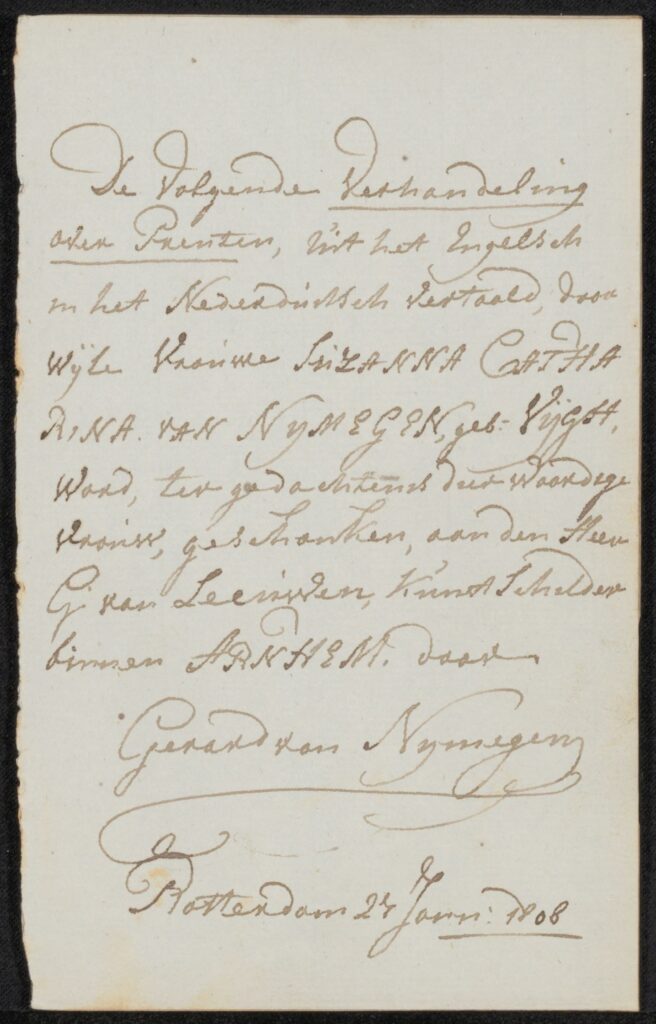 De Volgende Verhandeling
over Prenten, uit het Engelsch
in het Nederduitsch vertaald, door
wyle Vrouwe SUZANNA CATHA
RINA. VAN NYMEGEN, geb: VYGH,
word, ter gedachtenis dier waardige
vrouw, geschonken, aan den Heer
G: van Leeuwen, Kunst Schilder
binnen ARNHEM. door
Gerard van Nymegen
Rotterdam 27 Jann: 1808